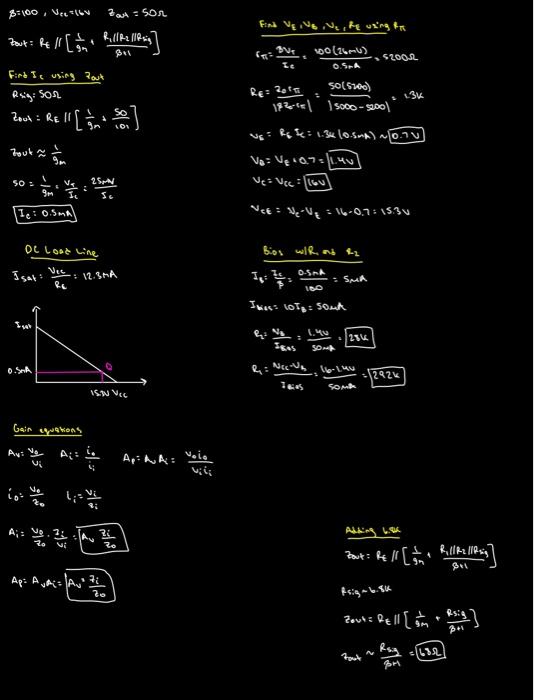 β=100, Vcc=16V Zout = 50Ω
Zout = RE // [1/gm + R1//R2//Rsig / β+1]
Find Ic using Zout
Rsig = 50Ω
Zout = RE // [1/gm + 50/101]
Zout ≈ 1/gm
50 = 1/gm = VT/Ic = 25mV/Ic
Ic = 0.5mA
DC Load Line
Isat = Vcc/RE = 12.3mA
Isat
Q
0.5mA
15.3V Vcc
Gain equations
Av = Vo/Vi Ai = io/ii Ap = Av Ai = Vo io / Vi ii
io = Vo/Zo ii = Vi/Zi
Ai = Vo/Zo · Zi/Vi = Av Zi/Zo
Ap = Av Ai = Av² Zi/Zo
Find VE, VB, VC, RE using rπ
rπ = βVT/Ic = 100(26mV)/0.5mA = 5200Ω
RE = Zo rπ / |βZo-rπ| = 50(5200) / |5000-5200| = 1.3K
VE = RE Ic = 1.3K(0.5mA) ≈ 0.7V
VB = VE + 0.7 = 1.4V
VC = Vcc = 16V
VCE = VC-VE = 16-0.7 = 15.3V
Bias w/R1 and R2
IB = Ic/β = 0.5mA/100 = 5uA
IBIAS = 10IB = 50uA
R2 = VB/IBIAS = 1.4V/50uA = 28K
R1 = Vcc-VB / IBIAS = 16-1.4V / 50uA = 292K
Adding 6.8K
Zout = RE // [1/gm + R1//R2//Rsig / β+1]
Rsig = 6.8K
Zout = RE // [1/gm + Rsig/β+1]
Zout ~ Rsig/β+1 = 68Ω